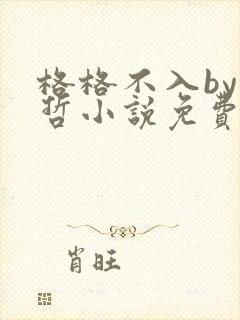 格格不入by
哲小說免費
肖旺